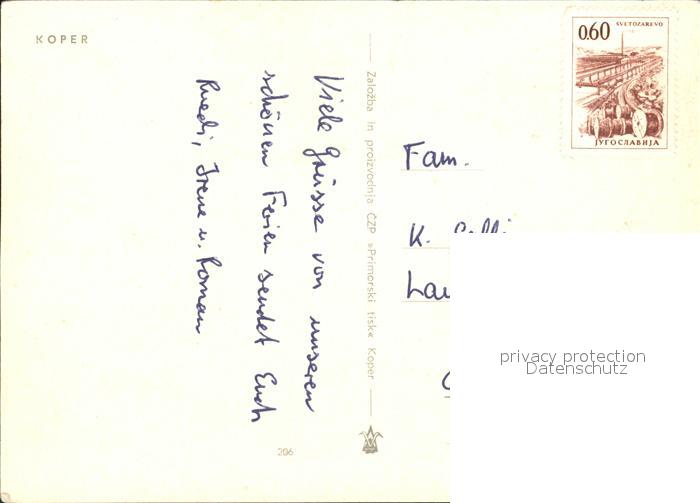 KOPER
Viele Grüsse von unseren
schönen Ferien sendet Euch
Ruedi, Irene u. Roman
Založba in proizvodnja ČZP »Primorski tisk« Koper
206
0.60
SVETOZAREVO
ЈУГОСЛАВИЈА
Fam.
K.
privacy protection
Datenschutz